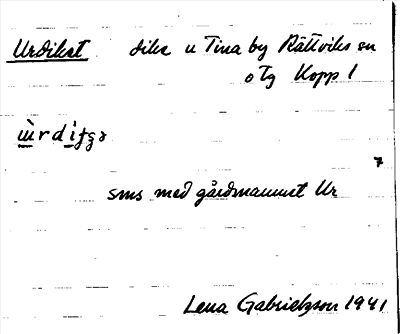 Urdiket dike u Tina by Rättviks sn
o Tg Kopp 1
7
sms med gårdnamnet Ur
Lena Gabrielsson 1941